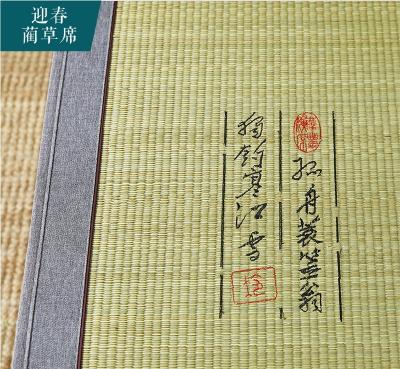 迎春
蔺草席
孤舟蓑笠翁
独钓寒江雪